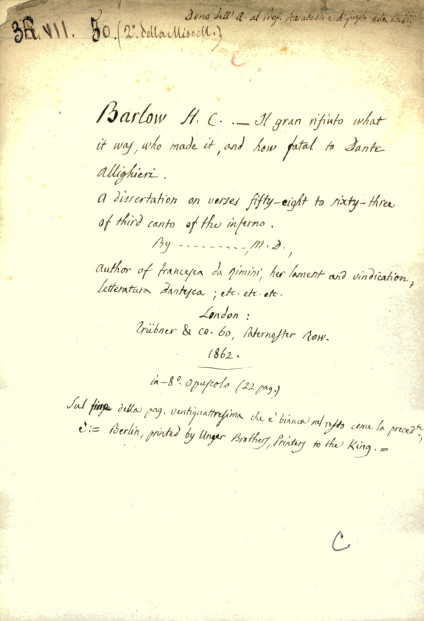 Dono dell' A. al Prof.
3R. VII. 30. (2ª. della Miscell.)
Barlow H. C. . — Il gran rifiuto what
it was, who made it, and how fatal to Dante
Allighieri.
A dissertation on verses fifty-eight to sixty-three
of third canto of the inferno.
By ---------, M. D.,
Author of francesca da Rimini, her lament and vindication,
letteratura Dantesca ; etc. etc. etc.
London :
Trübner & co. 60, Paternoster Row.
1862.
in-8°. opuscolo (22 pag.)
Sul fine della pag. ventiquattresima che è bianca nel resto come la precedte,
è := Berlin, printed by Unger Brothers, Printers to the King. =
C